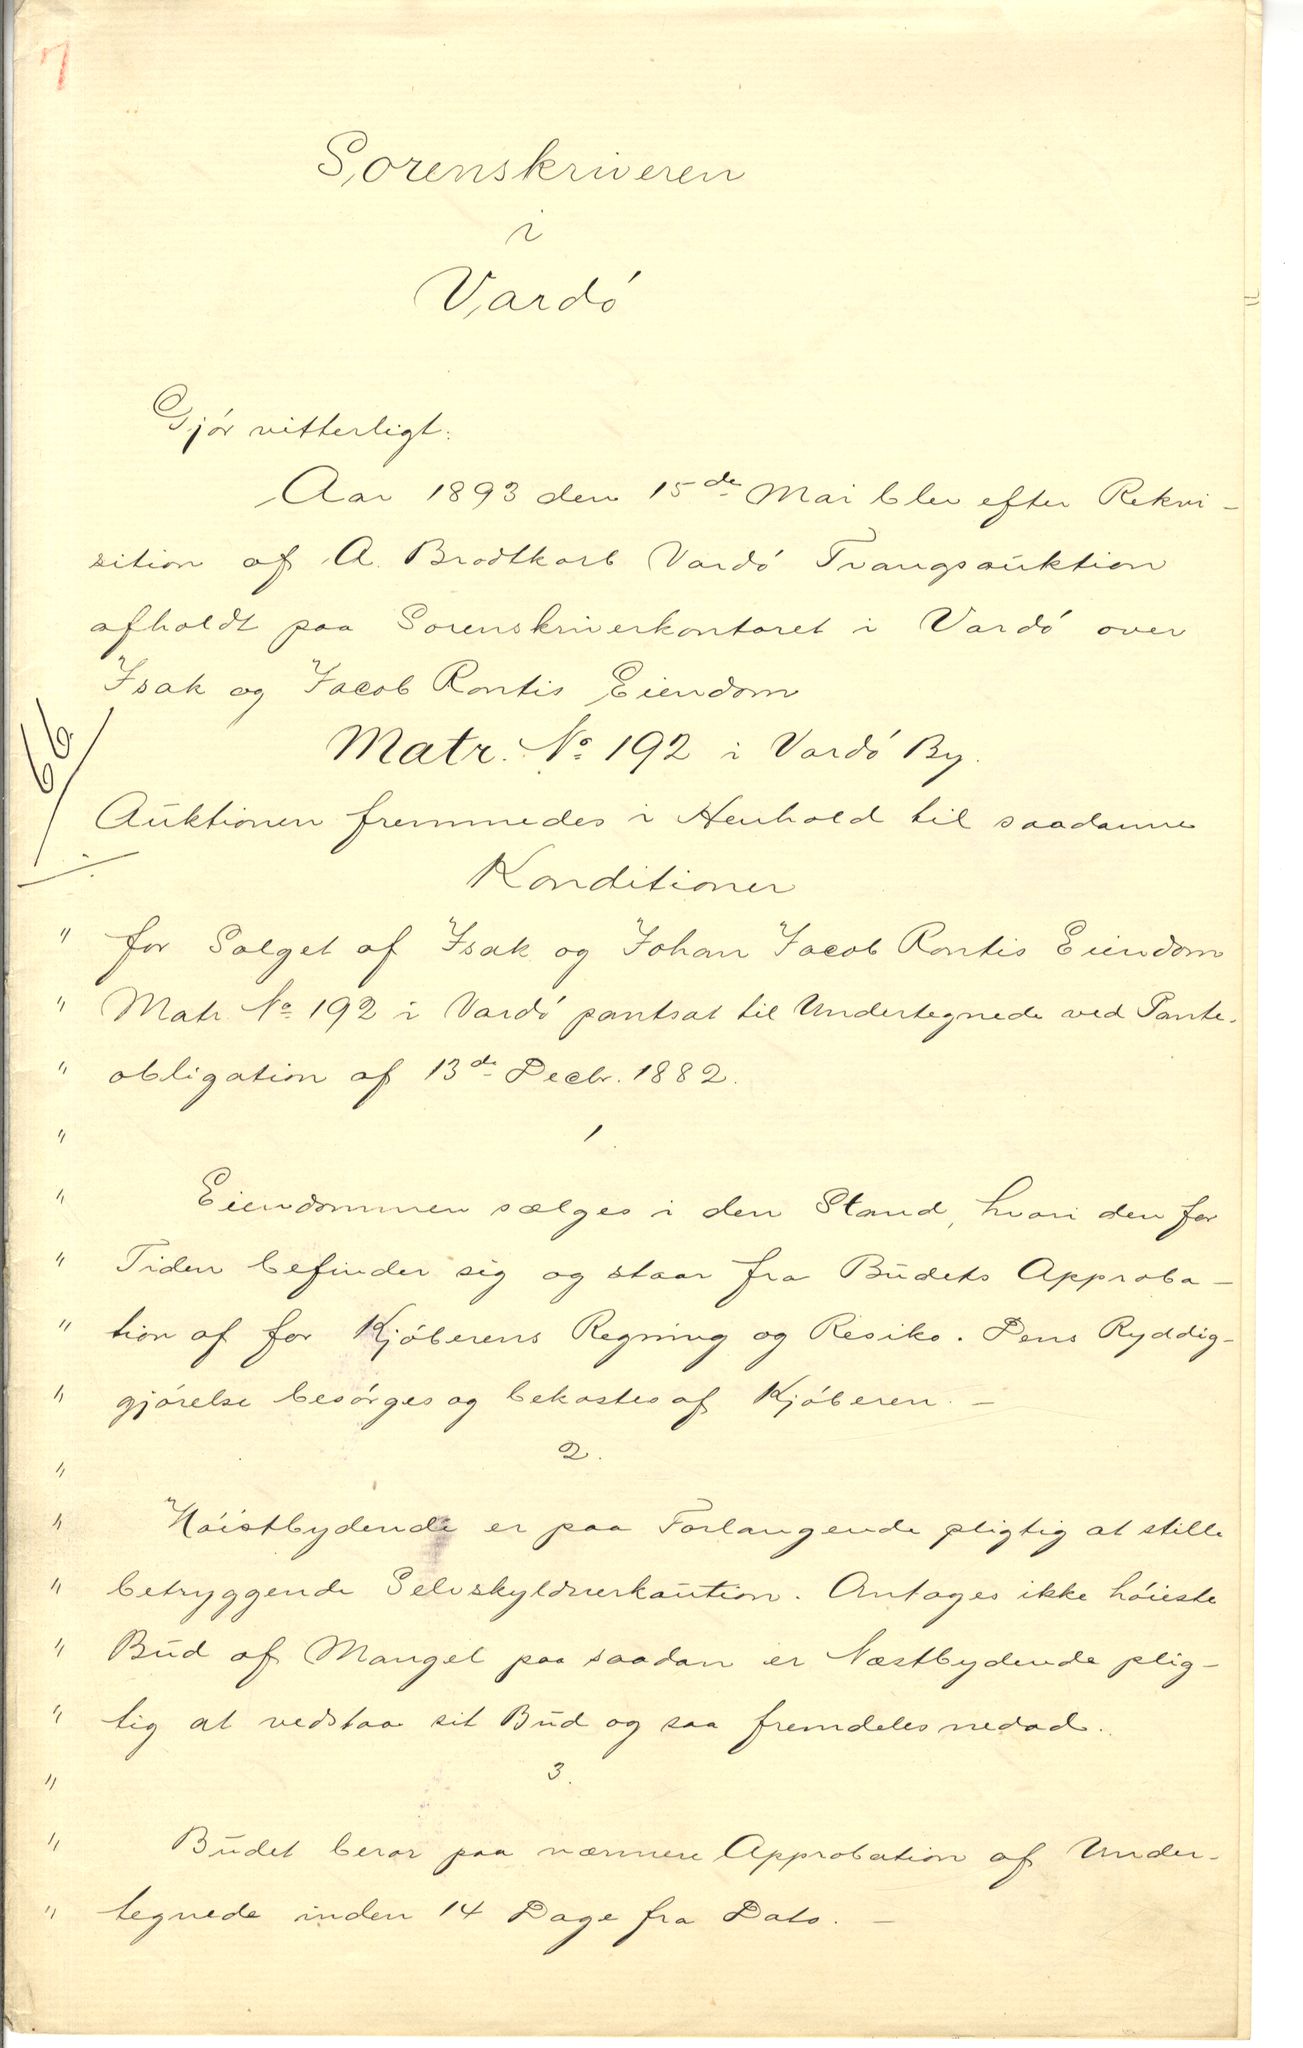 7
Sorenskriveren
i
Vardó
Gjór vitterligt:
Aar 1893 den 15de Mai blev efter Rekvi-
sition af A. Brodtkorb Vardó Tvangsauktion
afholdt paa Sorenskriverkontoret i Vardó over
Isak og Jacob Rontis Eiendom
Matr. No 192 i Vardó By.
66
Auktionen fremmedes i Henhold til saadanne
Konditioner
" for Salget af Isak og Johan Jacob Rontis Eiendom
" Matr No 192 i Vardó pantsat til Undertegnede ved Pante-
" obligation af 13de Decbr. 1882.
" 1.
" Eiendommen sælges i den Stand, hvori den for
" Tiden befinder sig og staar fra Budets Approba-
" tion af for Kjóberens Regning og Resiko. Dens Ryddig-
" gjórelse besórges og bekostes af Kjóberen. -
" 2.
" Hóistbydende er paa Forlangende pligtig at stille
" betryggende Selvskyldnerkaution. Antages ikke hóieste
" Bud af Mangel paa saadan er Næstbydende plig-
" tig at vedstaa sit Bud og saa fremdeles nedad.
" 3.
" Budet beror paa nærmere Approbation af Under-
" tegnede inden 14 Dage fra Dato. -